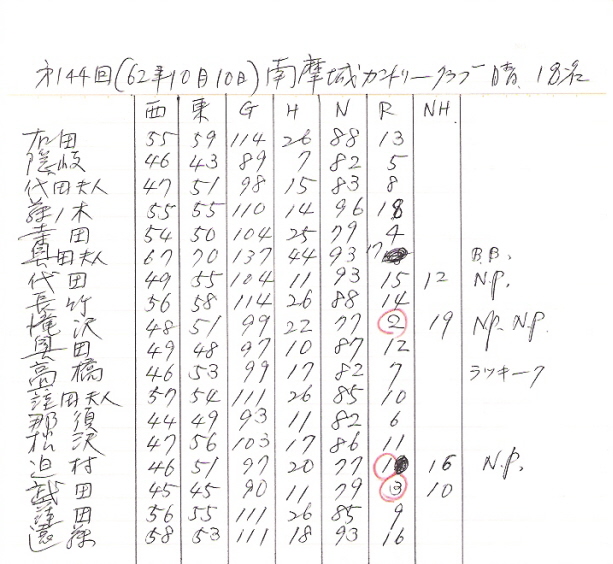 第144回(62年10月10日)南摩城カントリークラブ 晴 18名
西 東 G H N R NH
右田 55 59 114 26 88 13
隠岐 46 43 89 7 82 5
代田夫人 47 51 98 15 83 8
藤ノ木 55 55 110 14 96 18
幸田 54 50 104 25 79 4
眞田夫人 67 70 137 44 93 17 B.B.
代田 49 55 104 11 93 15 12 N.P.
長竹 56 58 114 26 88 14
沢 48 51 99 22 77 2 19 N.P. N.P.
眞田 49 48 97 10 87 12
高橋 46 53 99 17 82 7 ラッキー7
田夫人 57 54 111 26 85 10
那須 44 49 93 11 82 6
松沢 47 56 103 17 86 11
迫村 46 51 97 20 77 1 16 N.P.
武田 45 45 90 11 79 3 10
田 56 55 111 26 85 9
遠藤 58 53 111 18 93 16